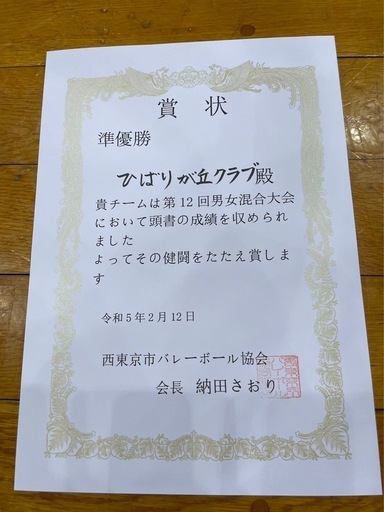 賞状
準優勝
ひばりが丘クラブ殿
貴チームは第12回男女混合大会
において頭書の成績を収められ
ました
よってその健闘をたたえ賞しま
す
令和5年2月12日
西東京市バレーボール協会
会長 納田さおり